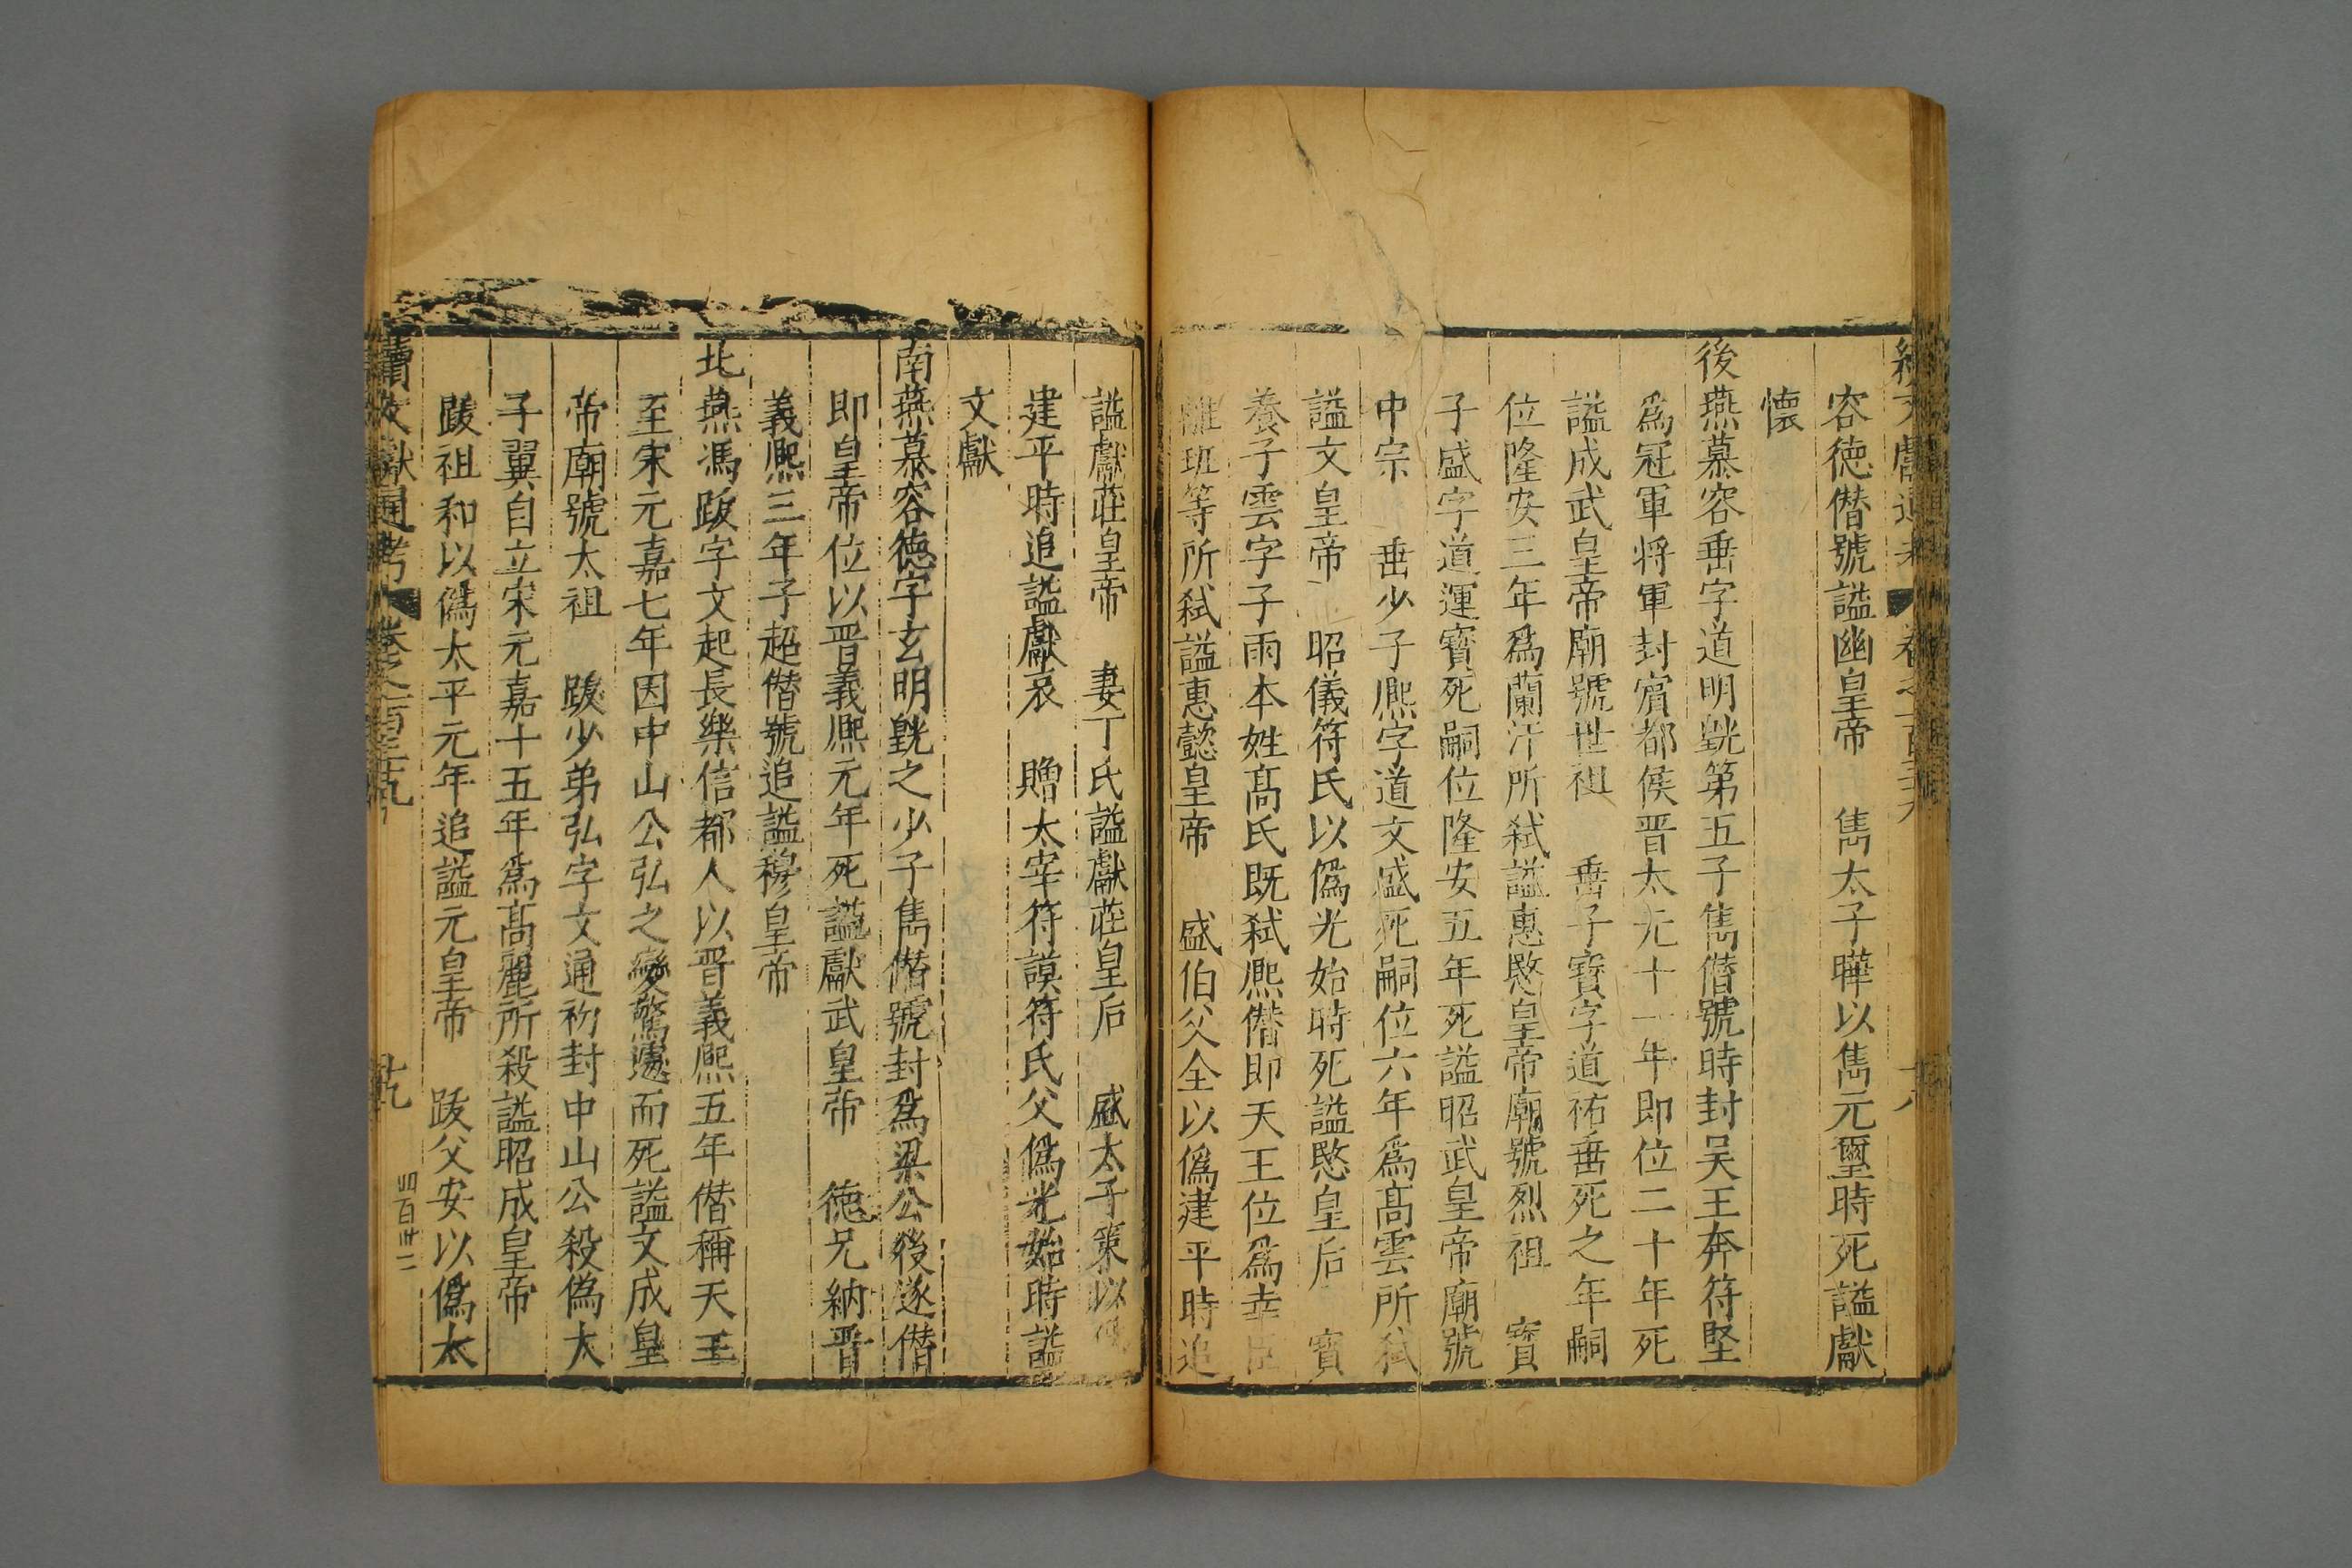 續文獻通考 卷之一百三十九 十八
容徳僭號謚幽皇帝 儁太子曄以儁元璽時死謚獻
懷
後燕慕容垂字道明皝第五子儁僭號時封吴王奔符堅
爲冠軍将軍封賔都侯晋太元十一年即位二十年死
謚成武皇帝廟號世祖 垂子寳字道祐垂死之年嗣
位隆安三年爲蘭汗所弑謚惠愍皇帝廟號烈祖 寳
子盛字道運寳死嗣位隆安五年死謚昭武皇帝廟號
中宗 垂少子熈字道文盛死嗣位六年爲髙雲所弑
謚文皇帝 昭儀符氏以僞光始時死謚愍皇后 寳
養子雲字子雨本姓髙氏既弑熈僭即天王位爲幸臣
離班等所弑謚惠懿皇帝 盛伯父全以僞建平時追
謚獻莊皇帝 妻丁氏謚獻莊皇后 盛太子策以僞
建平時追謚獻哀 贈太宰符謨符氏父僞光始時謚
文獻
南燕慕容徳字玄明皝之少子儁僭號封爲梁公後遂僭
即皇帝位以晋義熈元年死謚獻武皇帝 徳兄納晋
義熈三年子超僭號追謚穆皇帝
北燕馮跋字文起長樂信都人以晋義熈五年僭稱天王
至宋元嘉七年因中山公弘之變驚遽而死謚文成皇
帝廟號太祖 跋少弟弘字文通初封中山公殺僞太
子翼自立宋元嘉十五年爲髙麗所殺謚昭成皇帝
跋祖和以僞太平元年追謚元皇帝 跋父安以僞太
續文獻通考 卷之一百三十九 十九 四百卅二